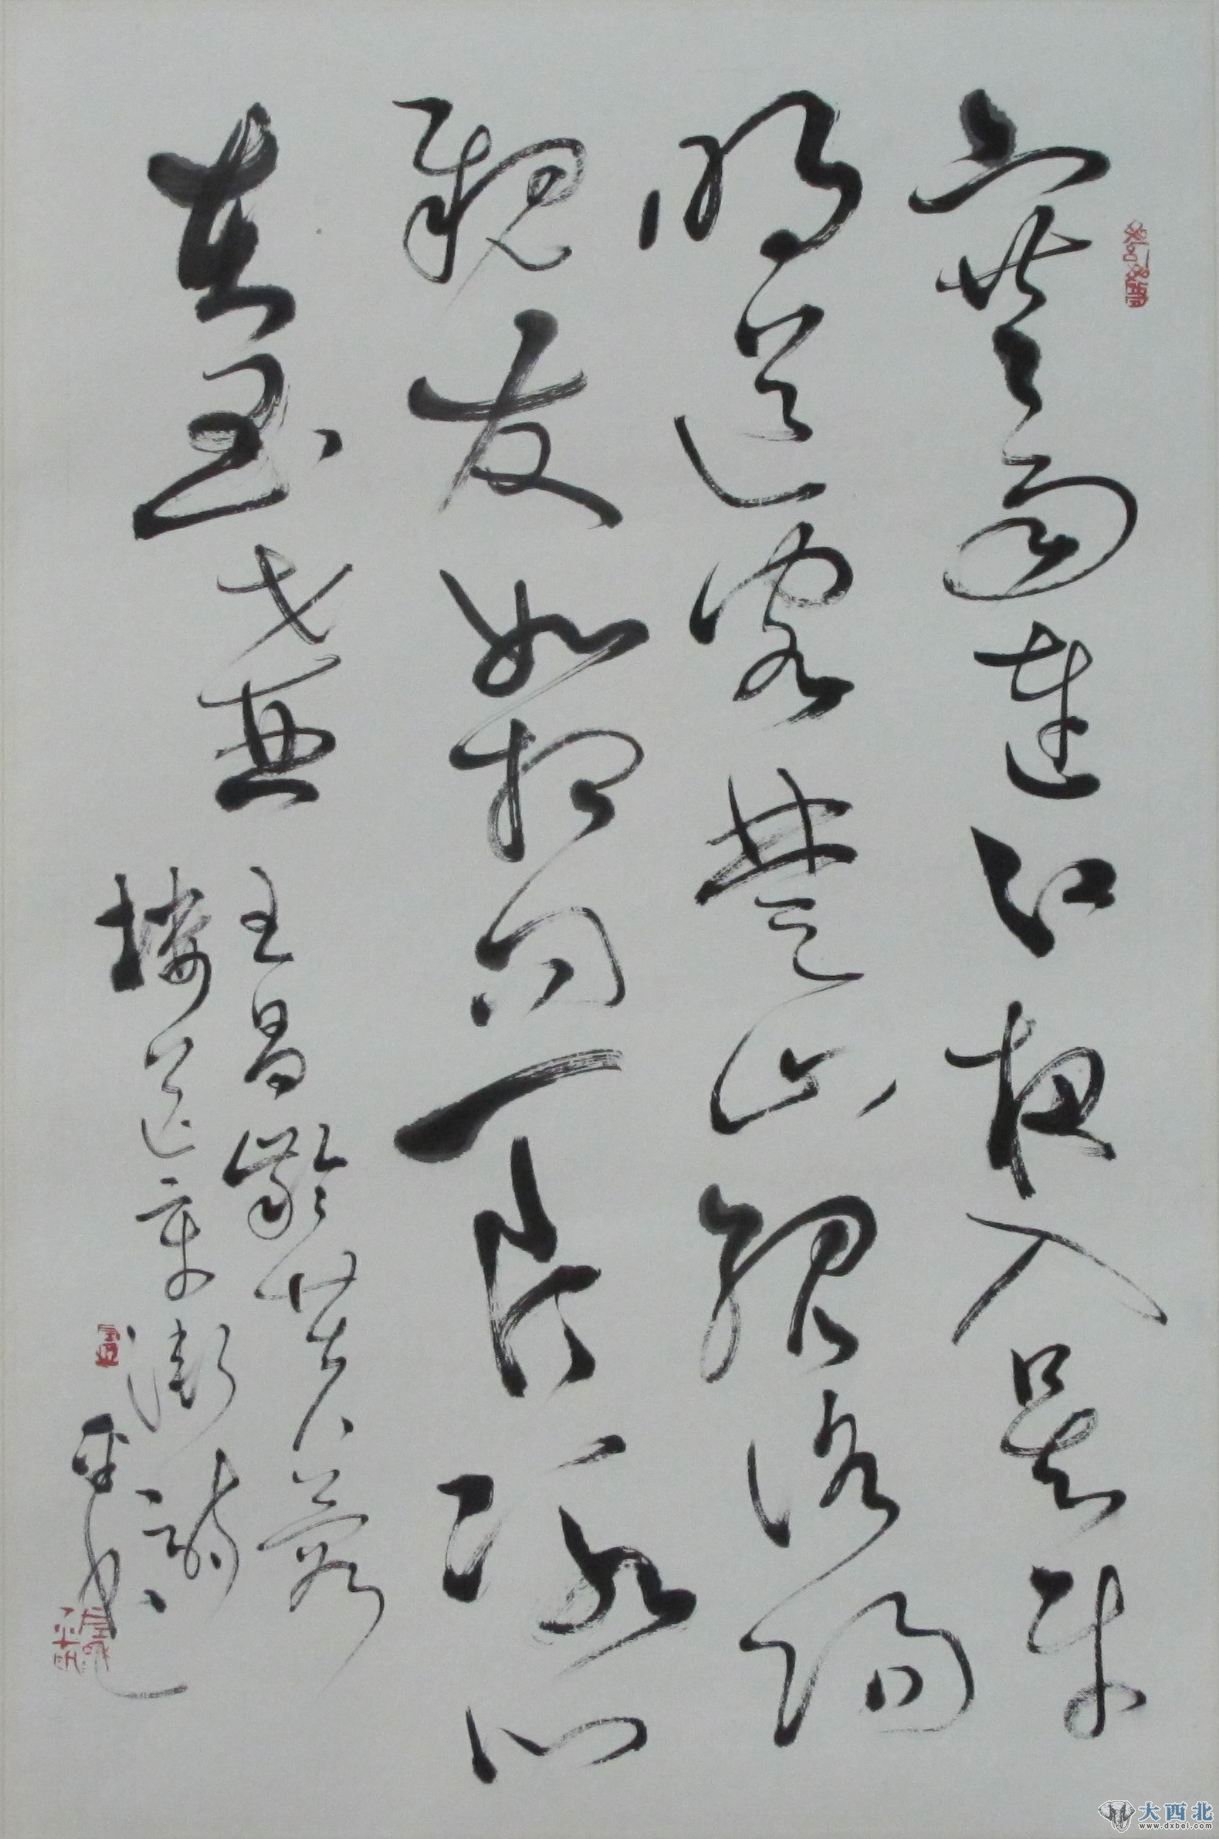 寒雨連江夜入吳平
明送客楚山孤洛陽
親友如相問一片冰心
在玉壺
王昌齡芙蓉
樓送辛漸詩
大西北
www.dxbei.com